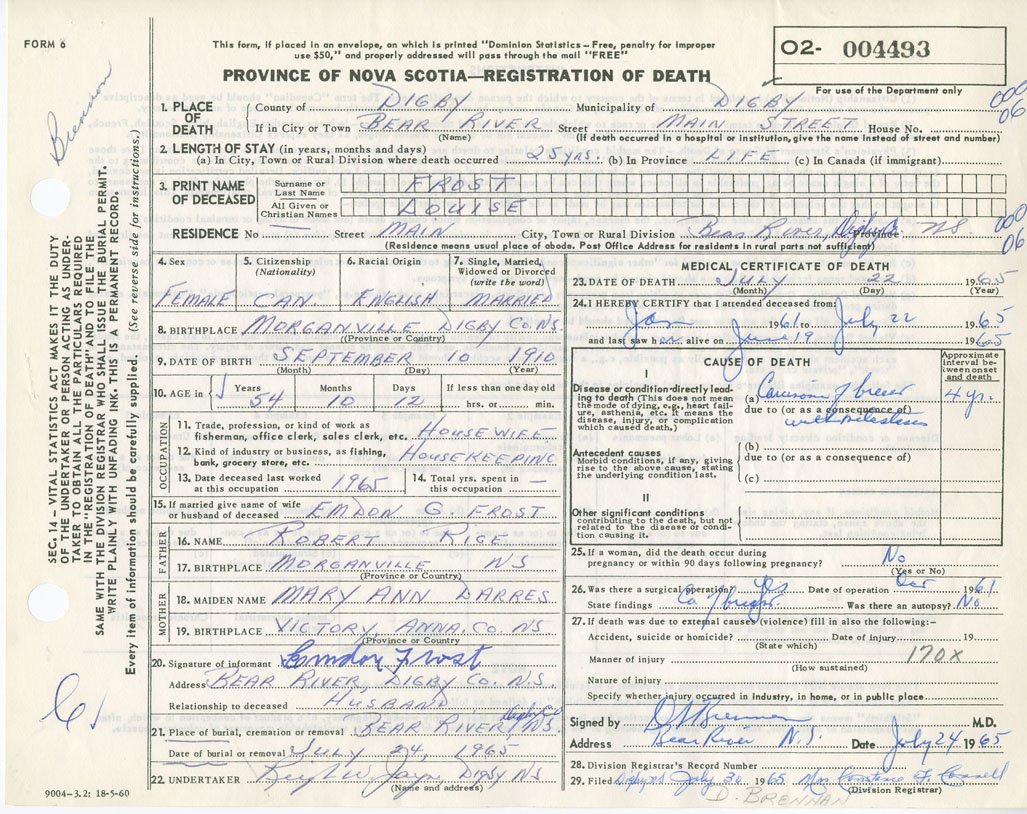 FORM 6
This form, if placed in an envelope, on which is printed "Dominion Statistics—Free, penalty for improper
use $50," and properly addressed will pass through the mail "FREE"
O2- 004493
PROVINCE OF NOVA SCOTIA—REGISTRATION OF DEATH
For use of the Department only
Brennan
000
06
1. PLACE OF DEATH { County of DIGBY Municipality of DIGBY
If in City or Town BEAR RIVER Street MAIN STREET House No.
(Name) (If death occurred in a hospital or institution, give the name instead of street and number)
2. LENGTH OF STAY (in years, months and days)
(a) In City, Town or Rural Division where death occurred 25 yrs. (b) In Province LIFE (c) In Canada (if immigrant)
3. PRINT NAME OF DECEASED { Surname or Last Name FROST
All Given or Christian Names LOUISE
000
06
RESIDENCE No — Street MAIN City, Town or Rural Division Bear River, Digby Co. Province NS
(Residence means usual place of abode. Post Office Address for residents in rural parts not sufficient)
SEC. 14 - VITAL STATISTICS ACT MAKES IT THE DUTY
OF THE UNDERTAKER OR PERSON ACTING AS UNDER-
TAKER TO OBTAIN ALL THE PARTICULARS REQUIRED
IN THE "REGISTRATION OF DEATH" AND TO FILE THE
SAME WITH THE DIVISION REGISTRAR WHO SHALL ISSUE THE BURIAL PERMIT.
WRITE PLAINLY WITH UNFADING INK. THIS IS A PERMANENT RECORD.
Every item of information should be carefully supplied. (See reverse side for instructions.)
4. Sex 5. Citizenship (Nationality) 6. Racial Origin 7. Single, Married, Widowed or Divorced (write the word)
FEMALE CAN. ENGLISH MARRIED
8. BIRTHPLACE MORGANVILLE DIGBY CO. NS
(Province or Country)
9. DATE OF BIRTH SEPTEMBER 10 1910
(Month) (Day) (Year)
10. AGE in { Years Months Days If less than one day old
54 10 12 hrs. or min.
OCCUPATION
11. Trade, profession, or kind of work as
fisherman, office clerk, sales clerk, etc. HOUSEWIFE
12. Kind of industry or business, as fishing,
bank, grocery store, etc. HOUSEKEEPING
13. Date deceased last worked at this occupation 1965 14. Total yrs. spent in this occupation —
15. If married give name of wife
or husband of deceased EMDON G. FROST
FATHER
16. NAME ROBERT RICE
17. BIRTHPLACE MORGANVILLE NS
(Province or Country)
MOTHER
18. MAIDEN NAME MARY ANN DARRES
19. BIRTHPLACE VICTORY, ANNA. CO. NS
(Province or Country)
20. Signature of informant Emdon Frost
Address BEAR RIVER, DIGBY CO. N.S.
Relationship to deceased HUSBAND
21. Place of burial, cremation or removal BEAR RIVER, Digby Co. NS.
Date of burial or removal JULY 24, 1965
22. UNDERTAKER DIGBY NS
(Name and address)
9004-3.2: 18-5-60
MEDICAL CERTIFICATE OF DEATH
23. DATE OF DEATH JULY 22 1965
(Month) (Day) (Year)
24. I HEREBY CERTIFY that I attended deceased from:
Jan 1961 to July 22 1965
and last saw her alive on June 19 1965
CAUSE OF DEATH
Approximate interval between onset and death
I
Disease or condition directly leading to death (This does not mean
the mode of dying, e.g., heart failure, asthenia, etc. It means the
disease, injury, or complication which caused death.)
(a) Carcinoma of breast 4 yr.
due to (or as a consequence of)
with metastases
Antecedent causes
Morbid conditions, if any, giving
rise to the above cause, stating
the underlying condition last.
(b)
due to (or as a consequence of)
(c)
II
Other significant conditions
contributing to the death, but not
related to the disease or condition
causing it.
25. If a woman, did the death occur during
pregnancy or within 90 days following pregnancy? No
(Yes or No)
26. Was there a surgical operation? Yes Date of operation 1961
State findings Ca of breast. Was there an autopsy? No
27. If death was due to external causes (violence) fill in also the following:-
Accident, suicide or homicide? Date of injury 19
(State which)
Manner of injury 170X
(How sustained)
Nature of injury
Specify whether injury occurred in industry, in home, or in public place
Signed by Brennan M.D.
Address Bear River N.S. Date July 24 1965
28. Division Registrar's Record Number
29. Filed July 30 1965 Mrs Constance F. Connell
(Division Registrar)
D. BRENNAN